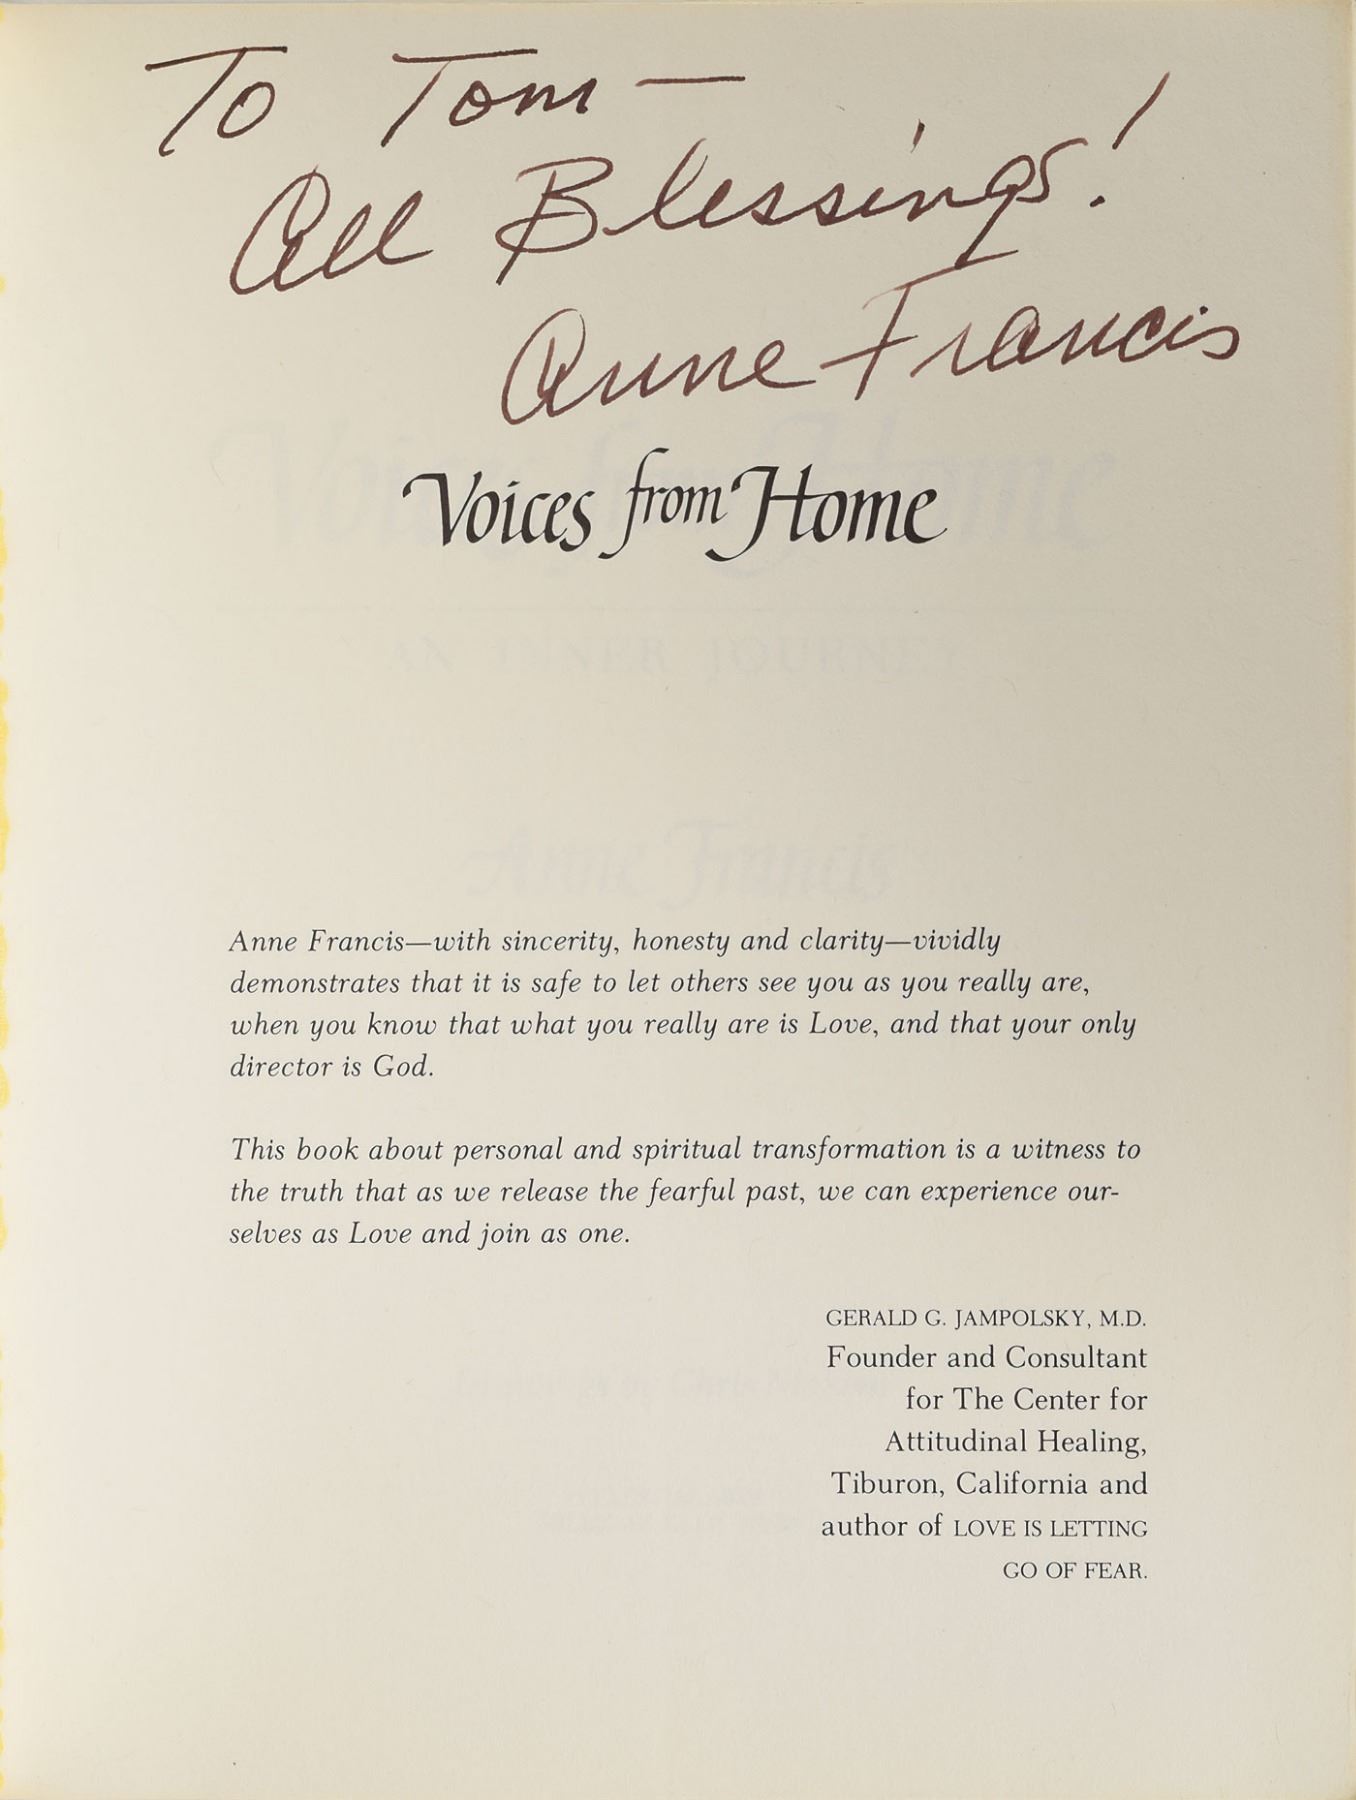 To Tom —
All Blessings!
Anne Francis
Voices from Home
AN INNER JOURNEY
Anne Francis
Anne Francis—with sincerity, honesty and clarity—vividly
demonstrates that it is safe to let others see you as you really are,
when you know that what you really are is Love, and that your only
director is God.
This book about personal and spiritual transformation is a witness to
the truth that as we release the fearful past, we can experience our-
selves as Love and join as one.
GERALD G. JAMPOLSKY, M.D.
Founder and Consultant
for The Center for
Attitudinal Healing,
Tiburon, California and
author of LOVE IS LETTING
GO OF FEAR.